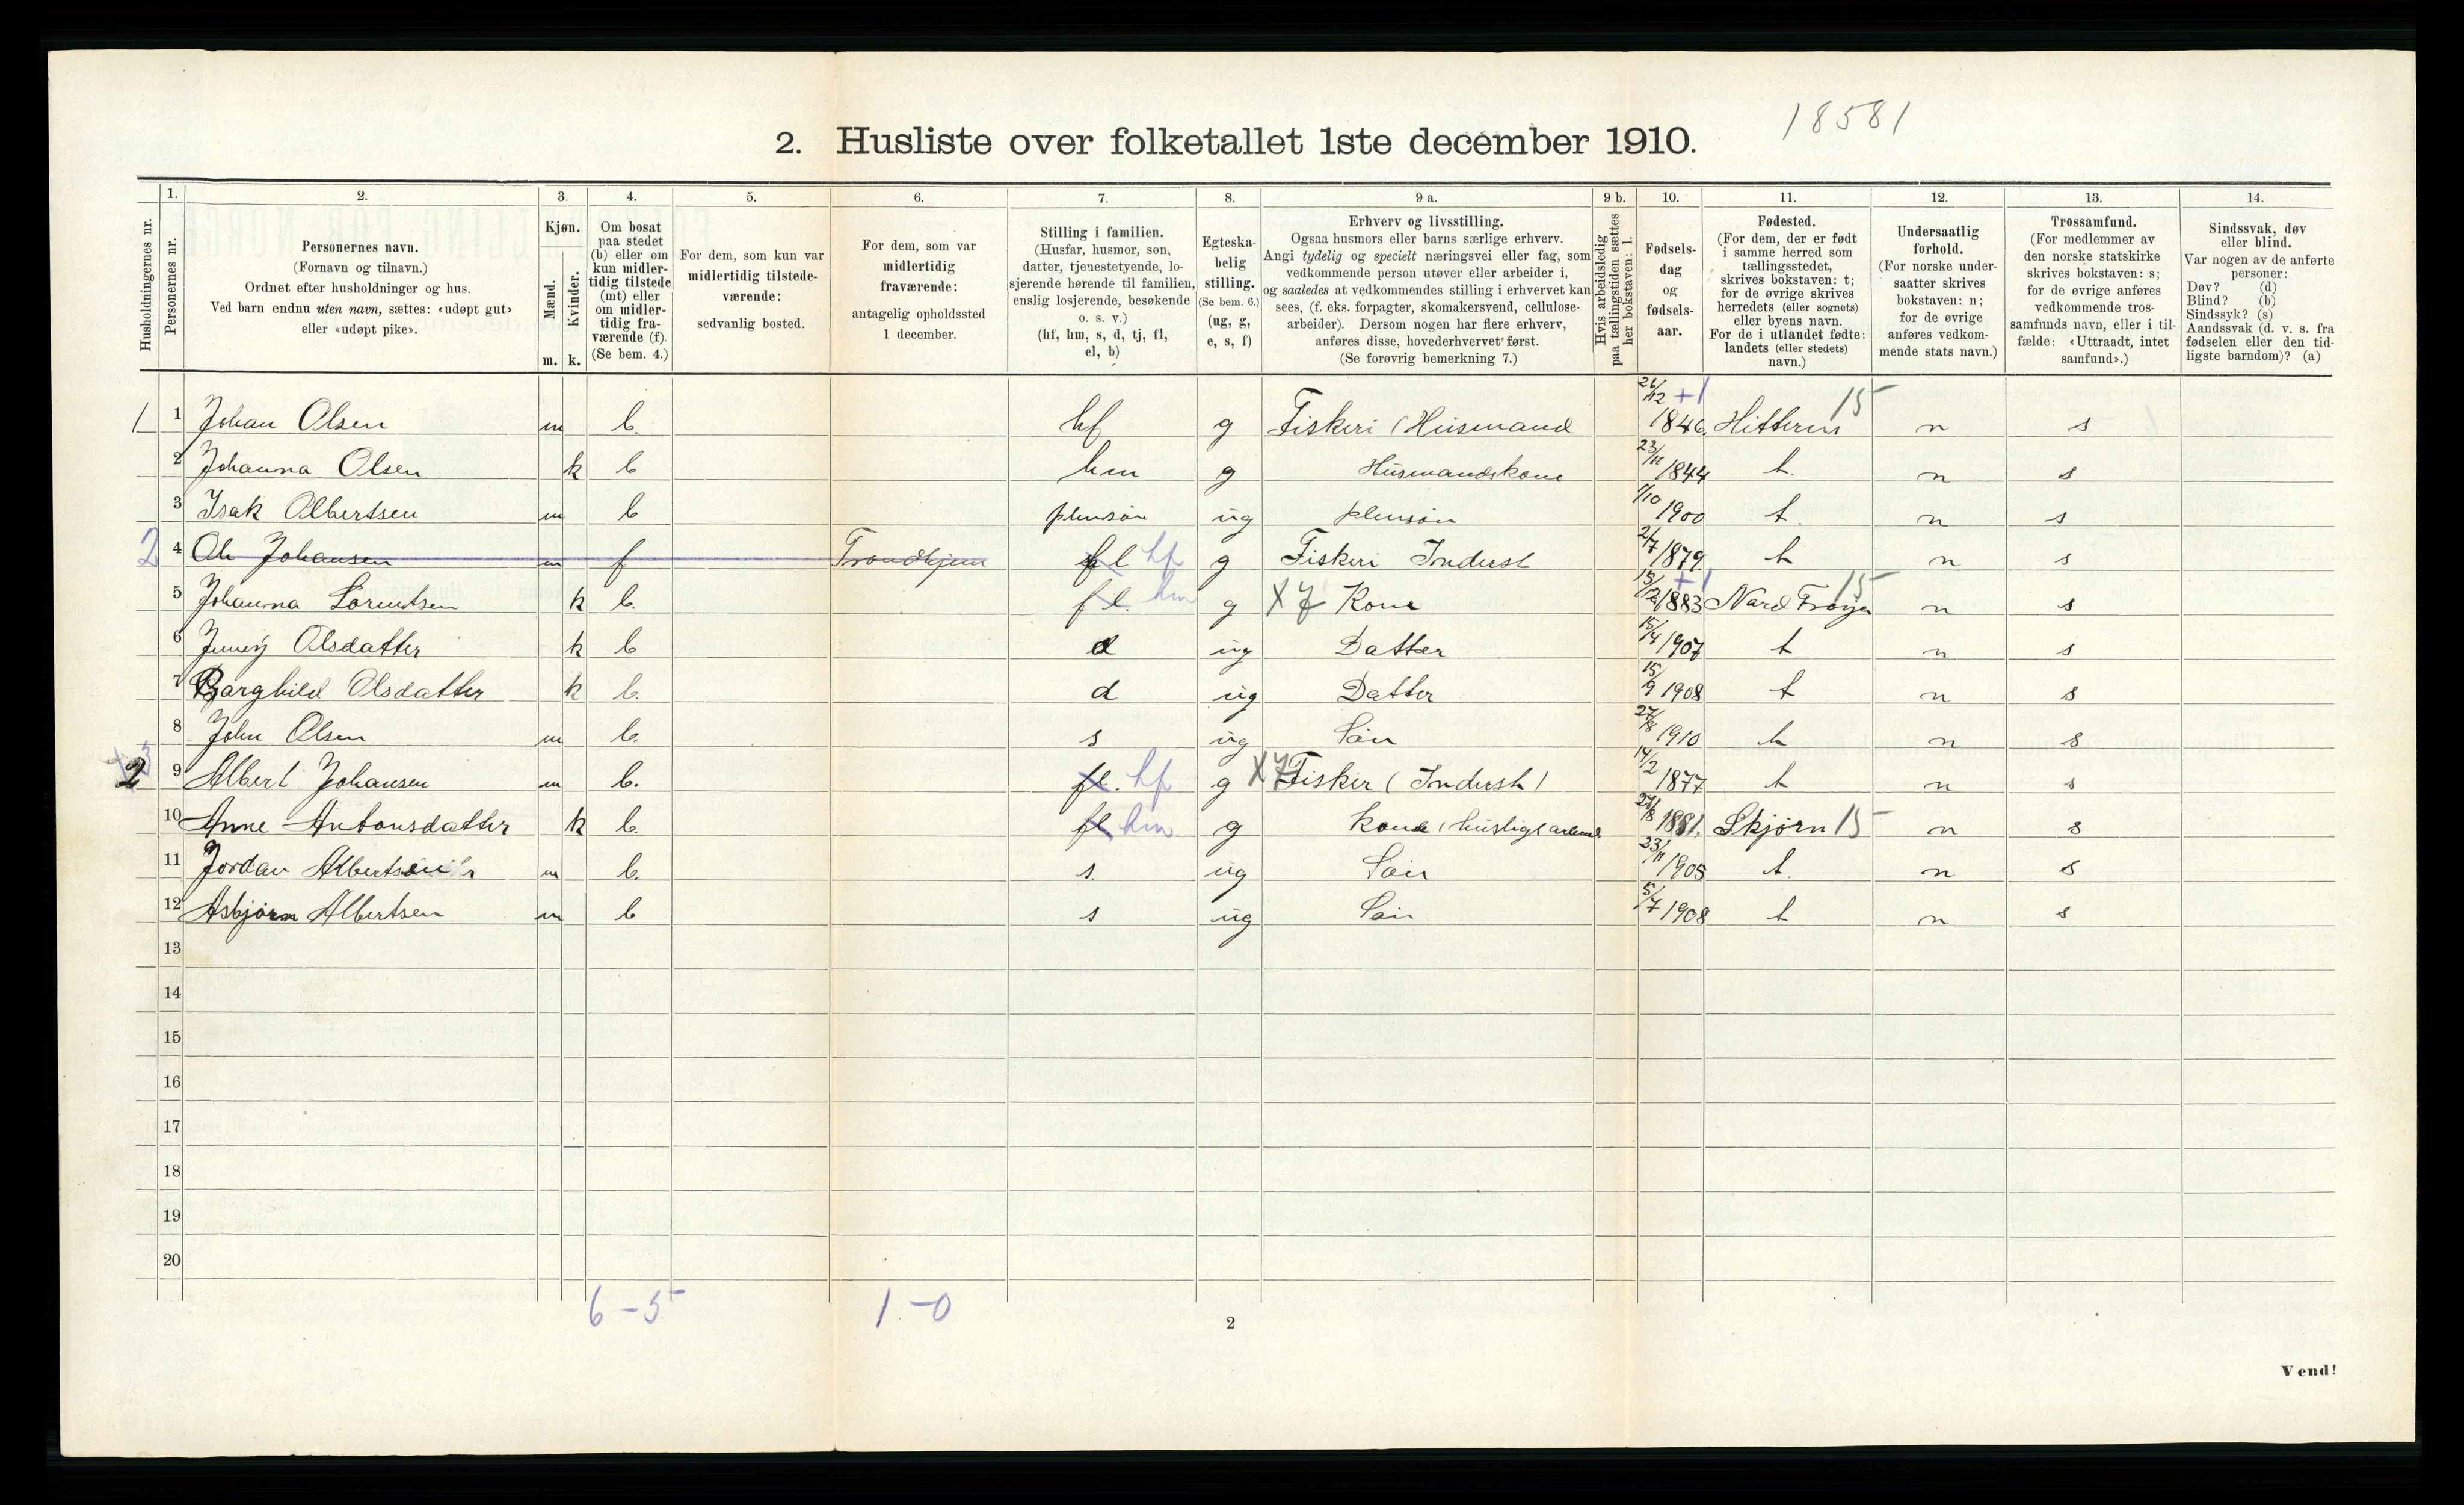 18581
2. Husliste over folketallet 1ste december 1910.
Husholdningernes nr.
1. Personernes nr.
2. Personernes navn. (Fornavn og tilnavn.) Ordnet efter husholdninger og hus. Ved barn endnu uten navn, sættes: «udøpt gut» eller «udøpt pike».
3. Kjøn. Mænd. m. Kvinder. k.
4. Om bosat paa stedet (b) eller om kun midlertidig tilstede (mt) eller om midlertidig fraværende (f). (Se bem. 4.)
5. For dem, som kun var midlertidig tilstedeværende: sedvanlig bosted.
6. For dem, som var midlertidig fraværende: antagelig opholdssted 1 december.
7. Stilling i familien. (Husfar, husmor, søn, datter, tjenestetyende, losjerende hørende til familien, enslig losjerende, besøkende o. s. v.) (hf, hm, s, d, tj, fl, el, b)
8. Egteskabelig stilling. (Se bem. 6.) (ug, g, e, s, f)
9 a. Erhverv og livsstilling. Ogsaa husmors eller barns særlige erhverv. Angi tydelig og specielt næringsvei eller fag, som vedkommende person utøver eller arbeider i, og saaledes at vedkommendes stilling i erhvervet kan sees, (f. eks. forpagter, skomakersvend, cellulosearbeider). Dersom nogen har flere erhverv, anføres disse, hovederhvervet først. (Se forøvrig bemerkning 7.)
9 b. Hvis arbeidsledig paa tællingstiden sættes her bokstaven: l.
10. Fødselsdag og fødselsaar.
11. Fødested. (For dem, der er født i samme herred som tællingsstedet, skrives bokstaven: t; for de øvrige skrives herredets (eller sognets) eller byens navn. For de i utlandet fødte: landets (eller stedets) navn.)
12. Undersaatlig forhold. (For norske undersaatter skrives bokstaven: n; for de øvrige anføres vedkommende stats navn.)
13. Trossamfund. (For medlemmer av den norske statskirke skrives bokstaven: s; for de øvrige anføres vedkommende trossamfunds navn, eller i tilfælde: «Uttraadt, intet samfund».)
14. Sindssvak, døv eller blind. Var nogen av de anførte personer: Døv? (d) Blind? (b) Sindssyk? (s) Aandssvak (d. v. s. fra fødselen eller den tidligste barndom)? (a)
1 1 Johan Olsen m b. hf g Fiskeri (Husmand 26/12 1846 +1 Hitteren 15 n s
2 Johanna Olsen k b hm g Husmandskone 23/11 1844 t. n s
3 Isak Albertsen m b plensøn ug plensøn 1/10 1900 t. n s
2 4 Ole Johansen m f Trondhjem fl hf g Fiskeri Inderst 2/7 1879 t n s
5 Johanna Lorentsen k b. fl. hm g X 7 Kone 15/12 1883 +1 Nord Frøyen 15 n s
6 Jenny Olsdatter k b d ug Datter 15/4 1907 t n s
7 Borghild Olsdatter k b. d ug Datter 15/9 1908 t n s
8 John Olsen m b. s ug Søn 27/8 1910 t n s
2 9 Albert Johansen m b. fl. hf g X 7 Fisker (Inderst) 14/2 1877 t n s
10 Anne Antonsdatter k b. fl hm g Kone (huslig arbeid 27/8 1881. Skjørn 15 n s
11 Jordan Albertsen m b. s. ug Søn 23/11 1905 t. n s
12 Asbjørn Albertsen m b s ug Søn 5/7 1908 t n s
13
14
15
16
17
18
19
20
6 - 5 1 - 0
2
Vend!